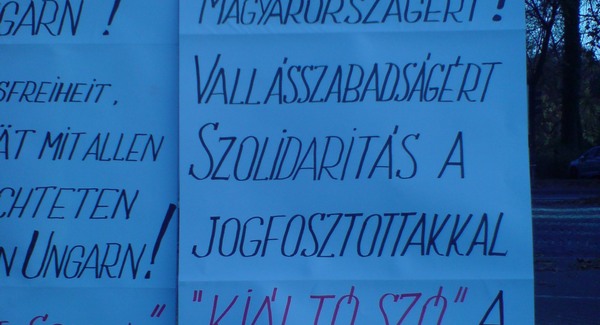 GARN !
SFREIHEIT,
ÄT MIT ALLEN
CHTETEN
N UNGARN!
MAGYARORSZÁGÉRT!
VALLÁSSZABADSÁGÉRT
SZOLIDARITÁS A
JOGFOSZTOTTAKKAL
"KIÁLTÓ SZÓ" A